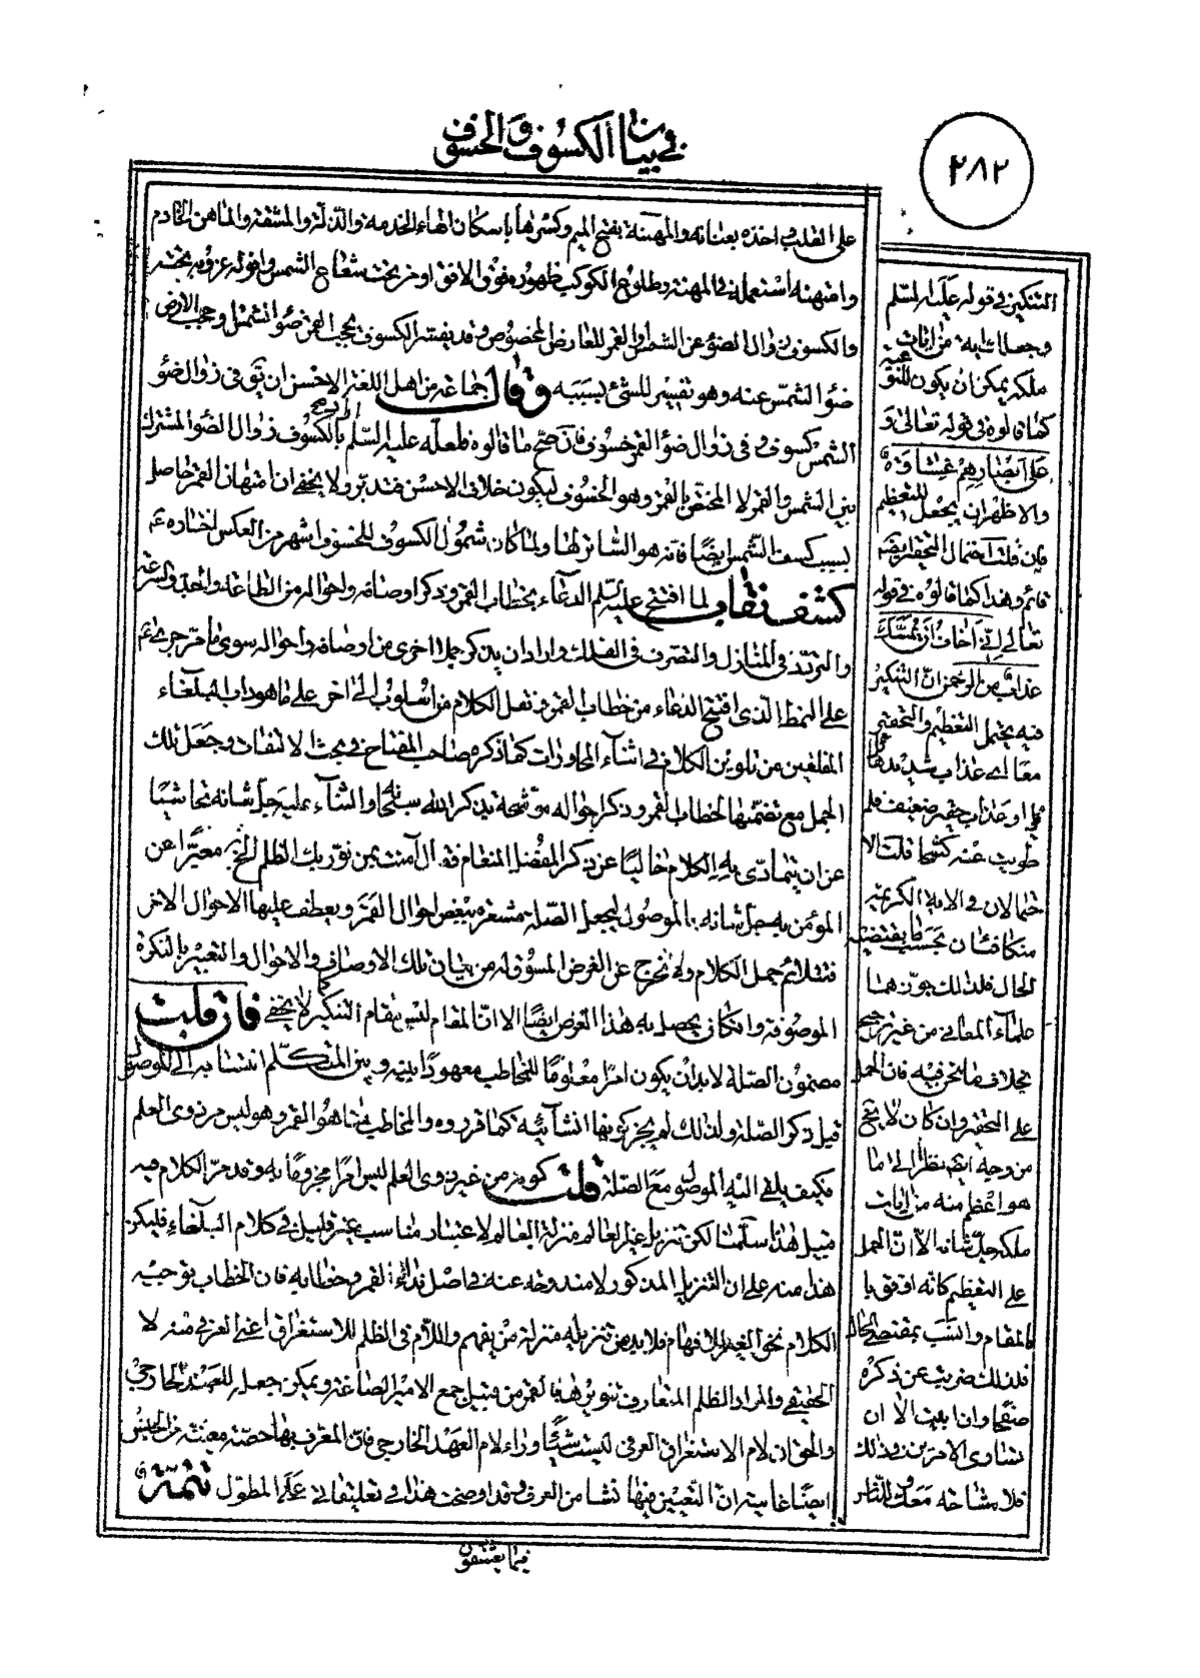 في بيان الكسوف والخسوف
٢٨٢
على القلب واخذه بعنانه والمهنة بفتح الميم وكسرها باسكان الهاء الخدمة والذلة والمشقة والماهن الخادم
وامتهنه استعمله في المهنة وطلوع الكوكب ظهوره فوق الافق او خروجه تحت شعاع الشمس وافوله غروبه تحته
والكسوف زوال الضوء عن الشمس او القمر للعارض المخصوص وقد يفسر الكسوف بحجب القمر ضوء الشمس وحجب الارض
ضوء الشمس عنه وهو تفسير للشئ بسببه وقال جماعة من اهل اللغة الاحسن ان يق في زوال ضوء
الشمس كسوف وفي زوال ضوء القمر خسوف فان صح ما قالوه فلعله عليه السلم اراد بالكسوف زوال الضوء المشترك
بين الشمس والقمر لا المختص بالقمر وهو الخسوف ليكون خلاف الاحسن فتدبر ولا يخفى ان امتهان القمر حاصل
بسبب كسف الشمس ايضًا فانه هو الساتر لها ولما كان شمول الكسوف للخسوف اشهر من العكس اختاره عم
كشف نقاب لما افتتح عليه السلم الدعاء بخطاب القمر وذكر اوصافه واحواله من الطاعة والجد والسرعة
والتردد في المنازل والتصرف في الفلك واراد ان يذكر جملا اخرى من اوصافه واحواله سوى ما مر جرى عم
على النمط الذي افتتح الدعاء من خطاب القمر ونقل الكلام من اسلوب الى اخر على ما هو داب البلغاء
المفلقين من تلوين الكلام في اثناء المحاورات كما ذكره صاحب المفتاح في بحث الالتفات وجعل تلك
الجمل مع تضمنها لخطاب القمر وذكر احواله موشحة بذكر الله سبحانه والثناء عليه جل شانه تحاشيا
عن ان يتمادى به الكلام خاليًا عن ذكر المفضل المنعام فقال آمنت بمن نور بك الظلم الخ معبرًا عن
المؤمن به جل شانه بالموصول ليجعل الصلة مشعرة ببعض احوال القمر ويعطف عليها الاحوال الاخر
فتتلائم جمل الكلام ولا تخرج عن الغرض المسوق له من بيان تلك الاوصاف والاحوال والتعبير بالنكرة
الموصوفة وان كان يحصل به هذا الغرض ايضًا الا ان المقام ليس مقام التنكير كما لا يخفى فان قلت
مضمون الصلة لا بد ان يكون امرًا معلومًا للمخاطب معهودًا بينه وبين المتكلم انتسابه الى الموصول
قبل ذكر الصلة ولذلك لم يجز كونها انشائية كما قرروه والمخاطب هنا هو القمر وهو ليس من ذوي العلم
فكيف يلقى اليه الموصول مع الصلة قلت كونه من غير ذوي العلم ليس امرًا مجزومًا به وقد مر الكلام فيه
قبيل هذا سلمنا لكن تنزيل غير العالم منزلة العالم لاعتبار مناسب غير قليل في كلام البلغاء فليكن
هذا منه على ان التنزيل المذكور لا مندوحة عنه في اصل نداء القمر وخطابه فان الخطاب توجيه
الكلام نحو الغير للافهام فلا بد من تنزيله منزلة من يفهم واللام في الظلم للاستغراق اعني العرفي منه لا
الحقيقي والمراد الظلم المتعارف تنويرها بالقمر من قبيل جمع الامير الصاغة ويمكن جعله للعهد الخارجي
والحق ان لام الاستغراق العرفي ليست شيئًا وراء لام العهد الخارجي فان المعرف بها حصة معينة من الجنس
ايضًا غايته ان التعيين فيها نشا من العرف وقد اوضحت هذا في تعليقاتي على المطول تتمة
فيما يتعلق
التنكير في قوله عليه السلم
وجعلك اية من ايات
ملكه يمكن ان يكون للنوعية
كما قالوه في قوله تعالى و
على ابصارهم غشاوة
والاظهر ان يجعل للتعظيم
فان قلت احتمال التحقير ايضًا
قائم وهذا كما قالوه في قوله
تعالى اني اخاف ان يمسك
عذاب من الرحمن ان التنكير
فيه يحتمل التعظيم والتحقير
معًا اي عذاب شديد هائل
او عذاب حقير ضعيف فلم
طويت عنه كشحا قلت الا
حتمالان في الاية الكريمة
متكافئان بحسب ما يقتضيه
الحال فلذلك جوزهما
علماء المعاني من غير ترجيح
بخلاف ما نحن فيه فان الحمل
على التحقير وان كان لا يخ
من وجه ايضًا نظرًا الى ما
هو اعظم منه من ايات
ملكه جل شانه الا ان الحمل
على التعظيم كانه اوفق با
لمقام وانسب بمقتضى الحال
فلذلك ضربت عن ذكره
صفحًا وان ابيت الا ان
تساوى الامرين في ذلك
فلا مشاحة معك للناس